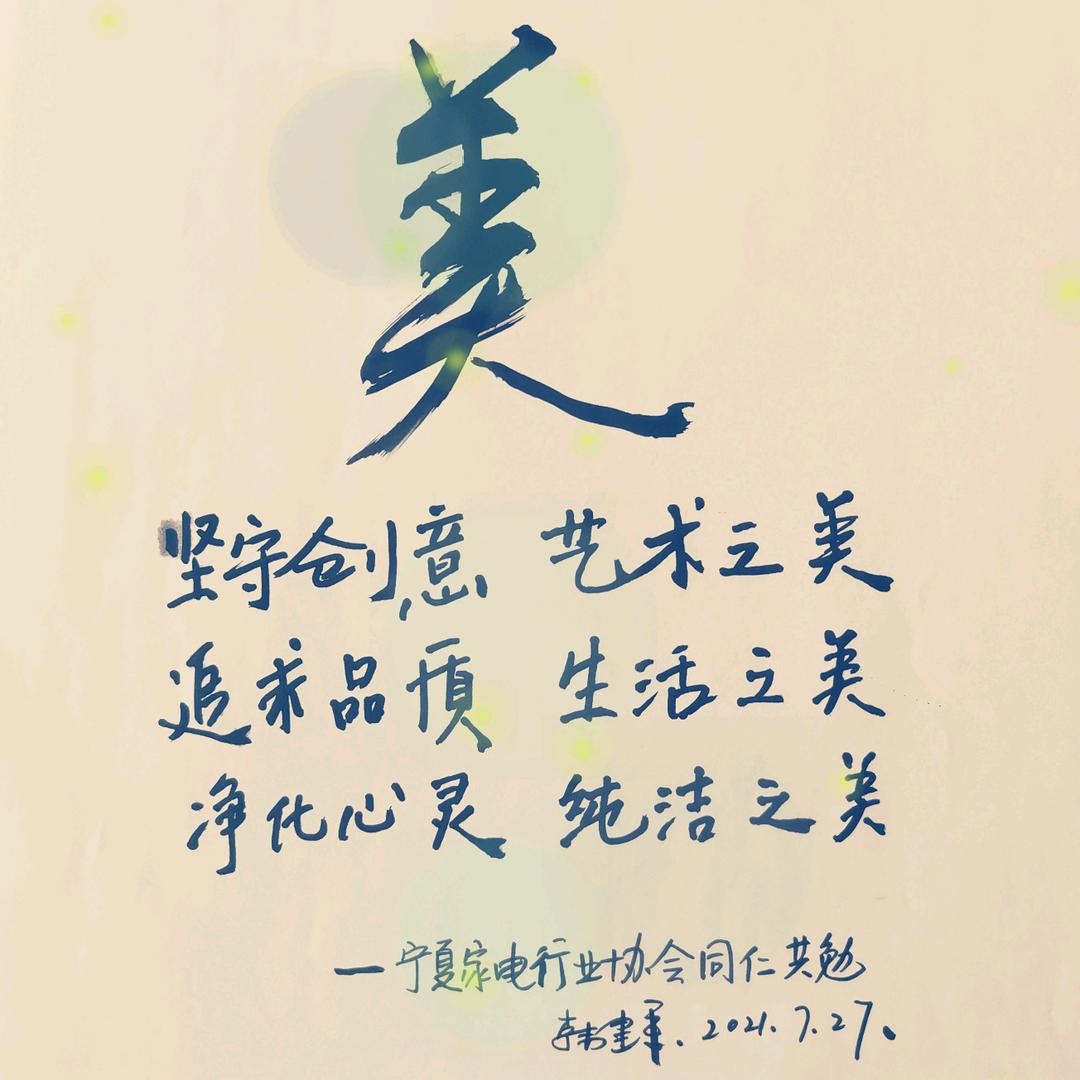 美
坚守创意 艺术之美
追求品质 生活之美
净化心灵 纯洁之美
—宁夏家电行业协会同仁共勉
韩建军. 2021.7.27.